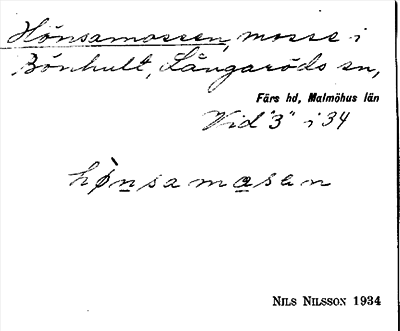 Hönsamossen, mosse i
Bönhult, Långaröds sn,
Färs hd, Malmöhus län
Vid "3" i 34
hø̀nsamɑsen
NILS NILSSON 1934